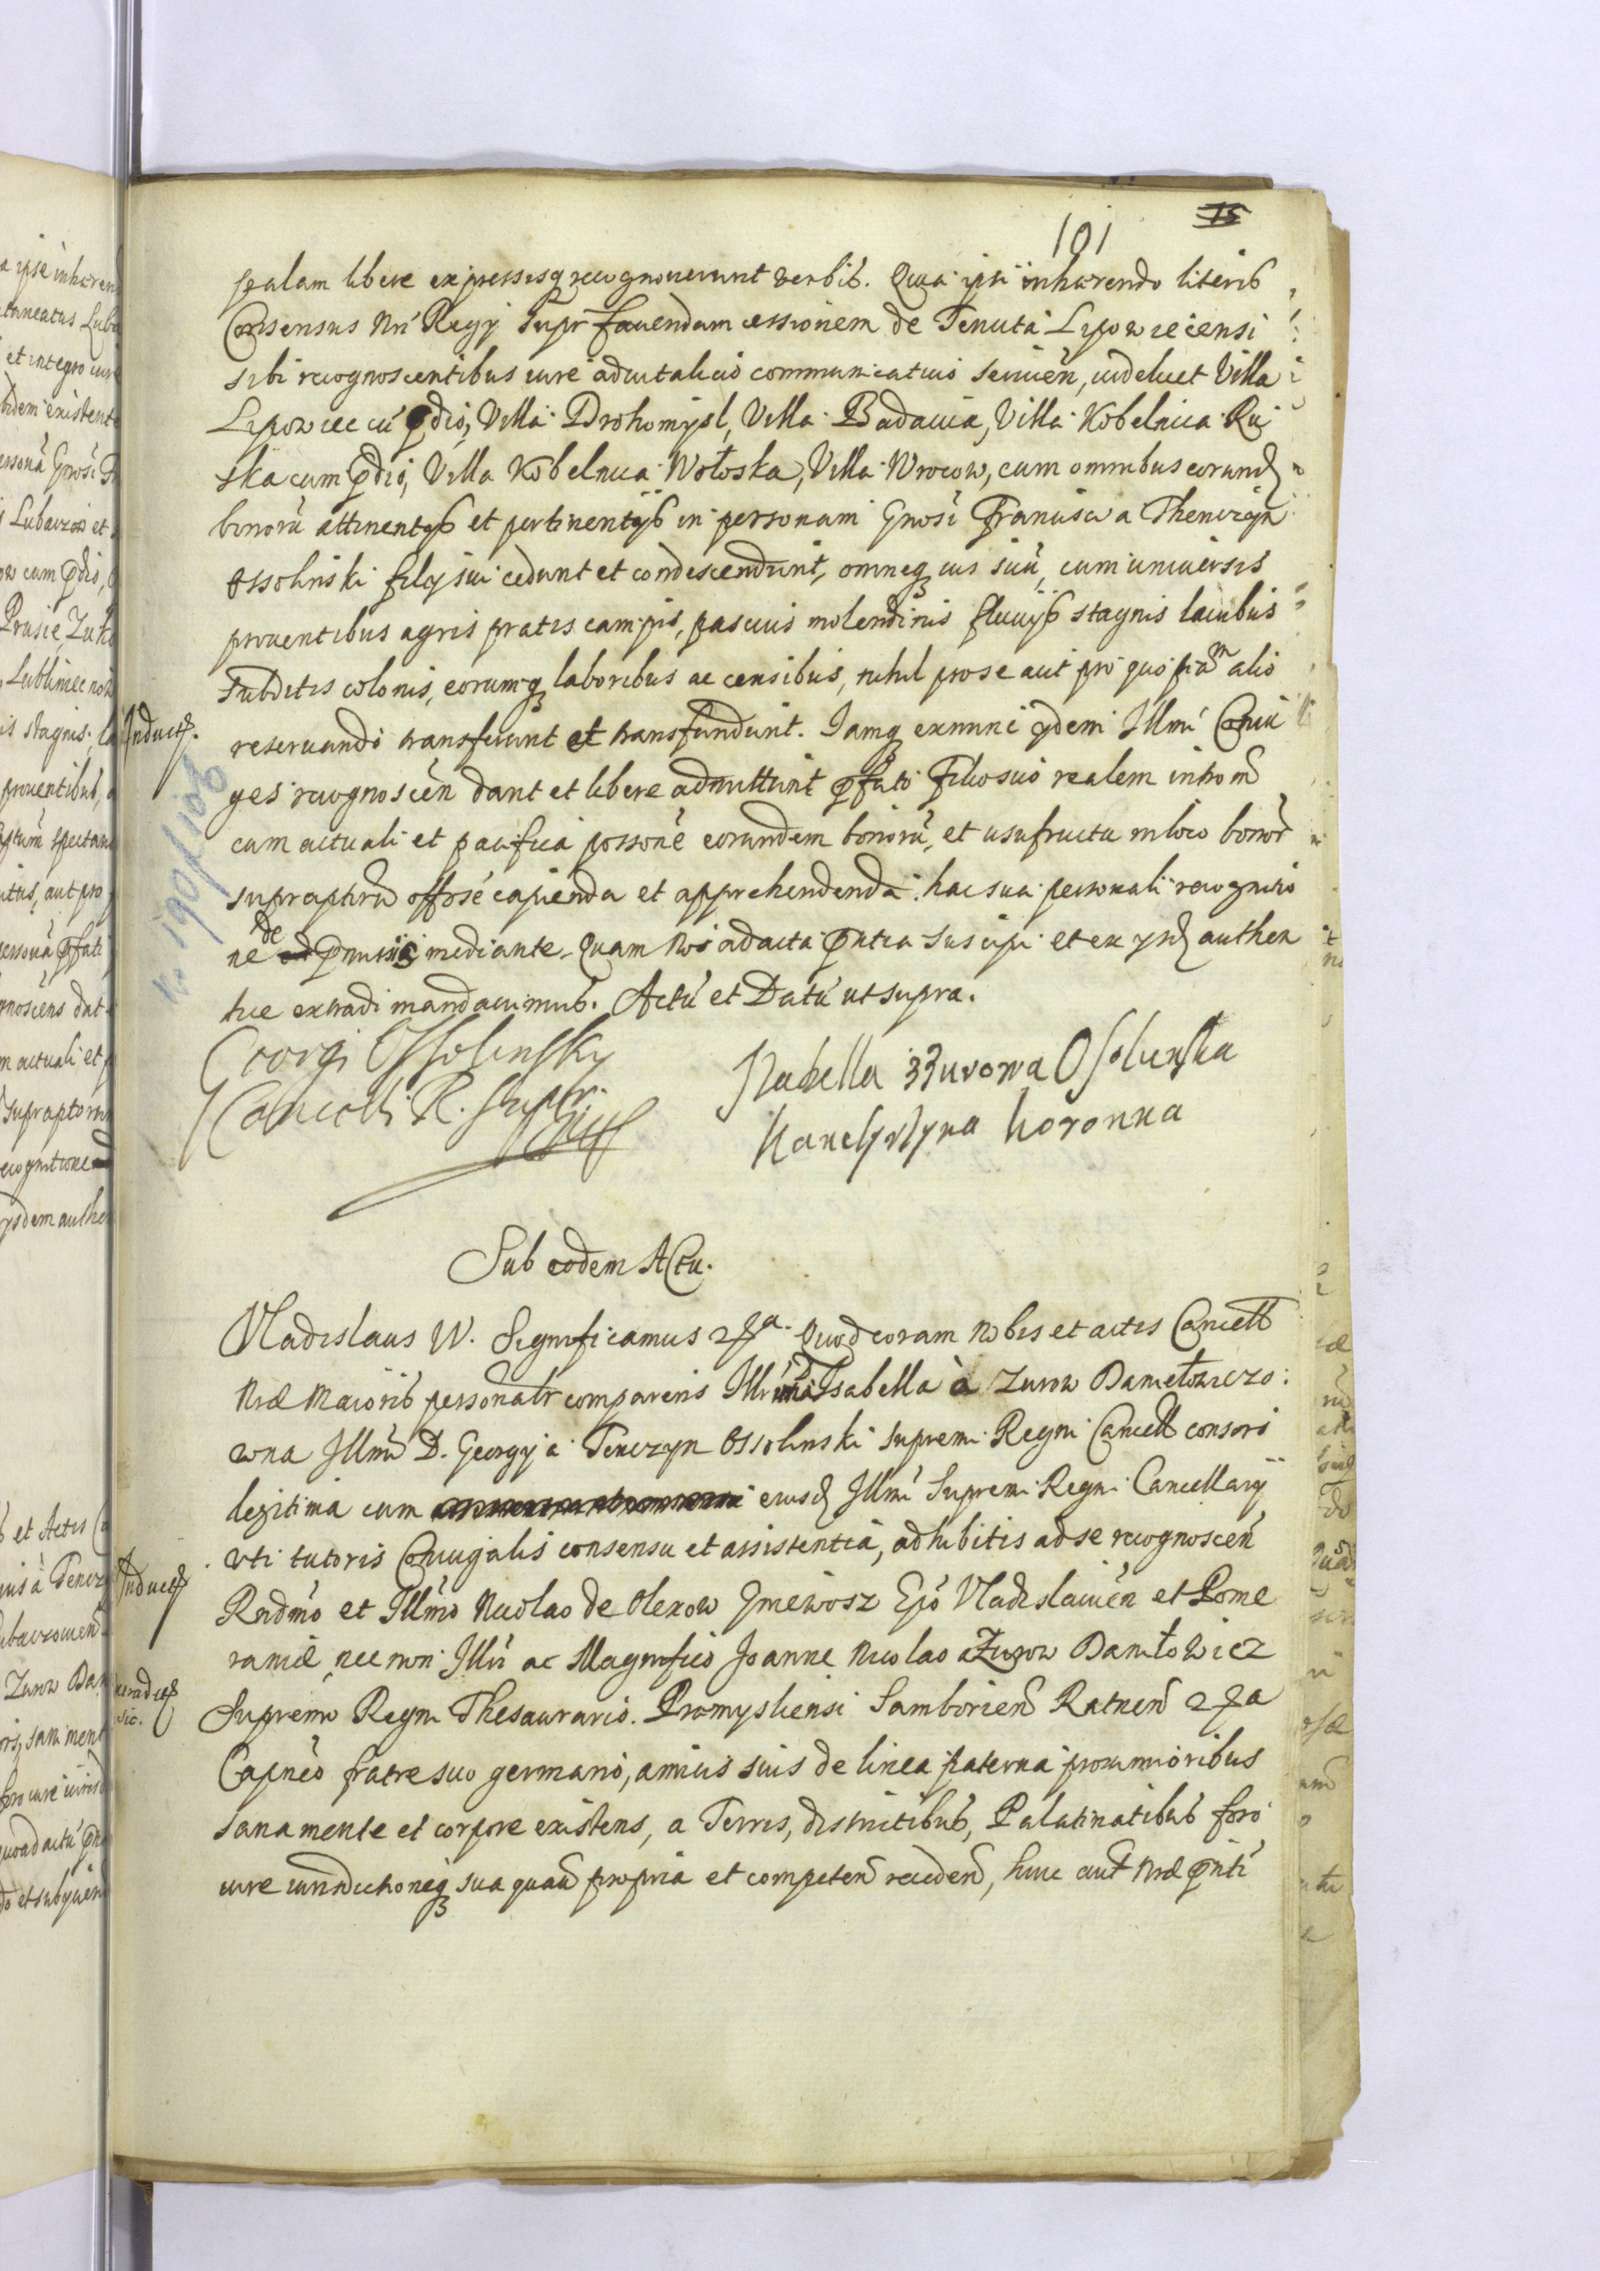 101
15
palam libere expressisq recognouerunt verbis. Quia ipsi inhærendo literis
Consensus Nri Regij Supr fauendam cessionem de Tenuta Lipowiecensi
sibi recognoscentibus iure aduitalicio communicatiuo seruien, videlicet Villa
Lipowiec cu pdio, Villa Drohomysl, Villa Badacia, Villa Kobelnica Ru
ska cum pdio, Villa Kobelnica Wołoska, Villa Wrocow, cum omnibus eorund
bonorũ attinentijs et pertinentijs in personam Gnosi Francisci a Thenczyn
Ossolinski filij sui cedunt et condescendunt, omneq ius suũ, cum uniuersis
prouentibus agris pratis campis, pascuis molendinis fluuijs stagnis lacubus
Subditis colonis, eorumq laboribus ac censibus, nihil pro se aut pro quopiam alio
reseruando transferunt et transfundunt. Iamq exnunc ijdem Illmi Coniu
ges recognoscen dant et libere admittunt pfato Filio suo realem introm
cum actuali et pacifica possone eorundem bonorũ, et usufructu in loco bonor
supraptorũ offose capienda et apprehendenda. hac sua personali recognitio
ne de pmissis mediante. Quam Nos ad acta pntia suscipi et ex ijsd authen
tice extradi mandauimus. Actũ et Datũ ut supra.
Georgi Ossolinsky
Cancell. R. Supr.
Izabella zZurowa Osolinska
Kanclyrzyna koronna
Sub eodem Actu.
Vladislaus IV. Significamus &a. Quod coram Nobis et actis Cancell
Nræ Maioris personalr comparens Illma Isabella à Zurow Daniełowiczo:
wna Illmi D. Georgij a Tenczyn Ossolinski supremi Regni Cancell consors
legitima cum eiusd Illmi Supremi Regni Cancellarij
uti tutoris Coniugalis consensu et assistentia, adhibitis ad se recognoscen
Rndmo et Illmo Nicolao de Olexow Gniewosz Epo Vladislauien et Pome
raniæ, nec non Illri ac Magnifico Joanne Nicolao a Zurow Daniłowicz
Supremo Regni Thesaurario. Præmysliensi Samborien Ratnen &a
Capneo fratre suo germano, amicis suis de linea paterna proximioribus
sana mente et corpore existens, a Terris, districtibus, Palatinatibus foro
iure iurisdictioneq sua quauis propria et competen receden, huic aut Nræ pnti
Induct.
Induct